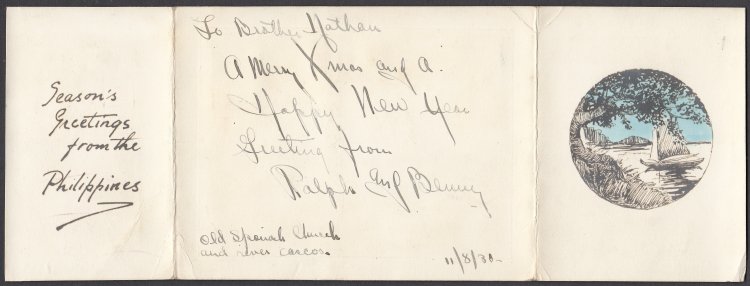 Season's
Greetings
from the
Philippines
To Brother Nathan
A Merry Xmas and A.
Happy New Year
Greeting from
Ralph and Benny
Old Spanish Church
and river cascos.
11/8/30